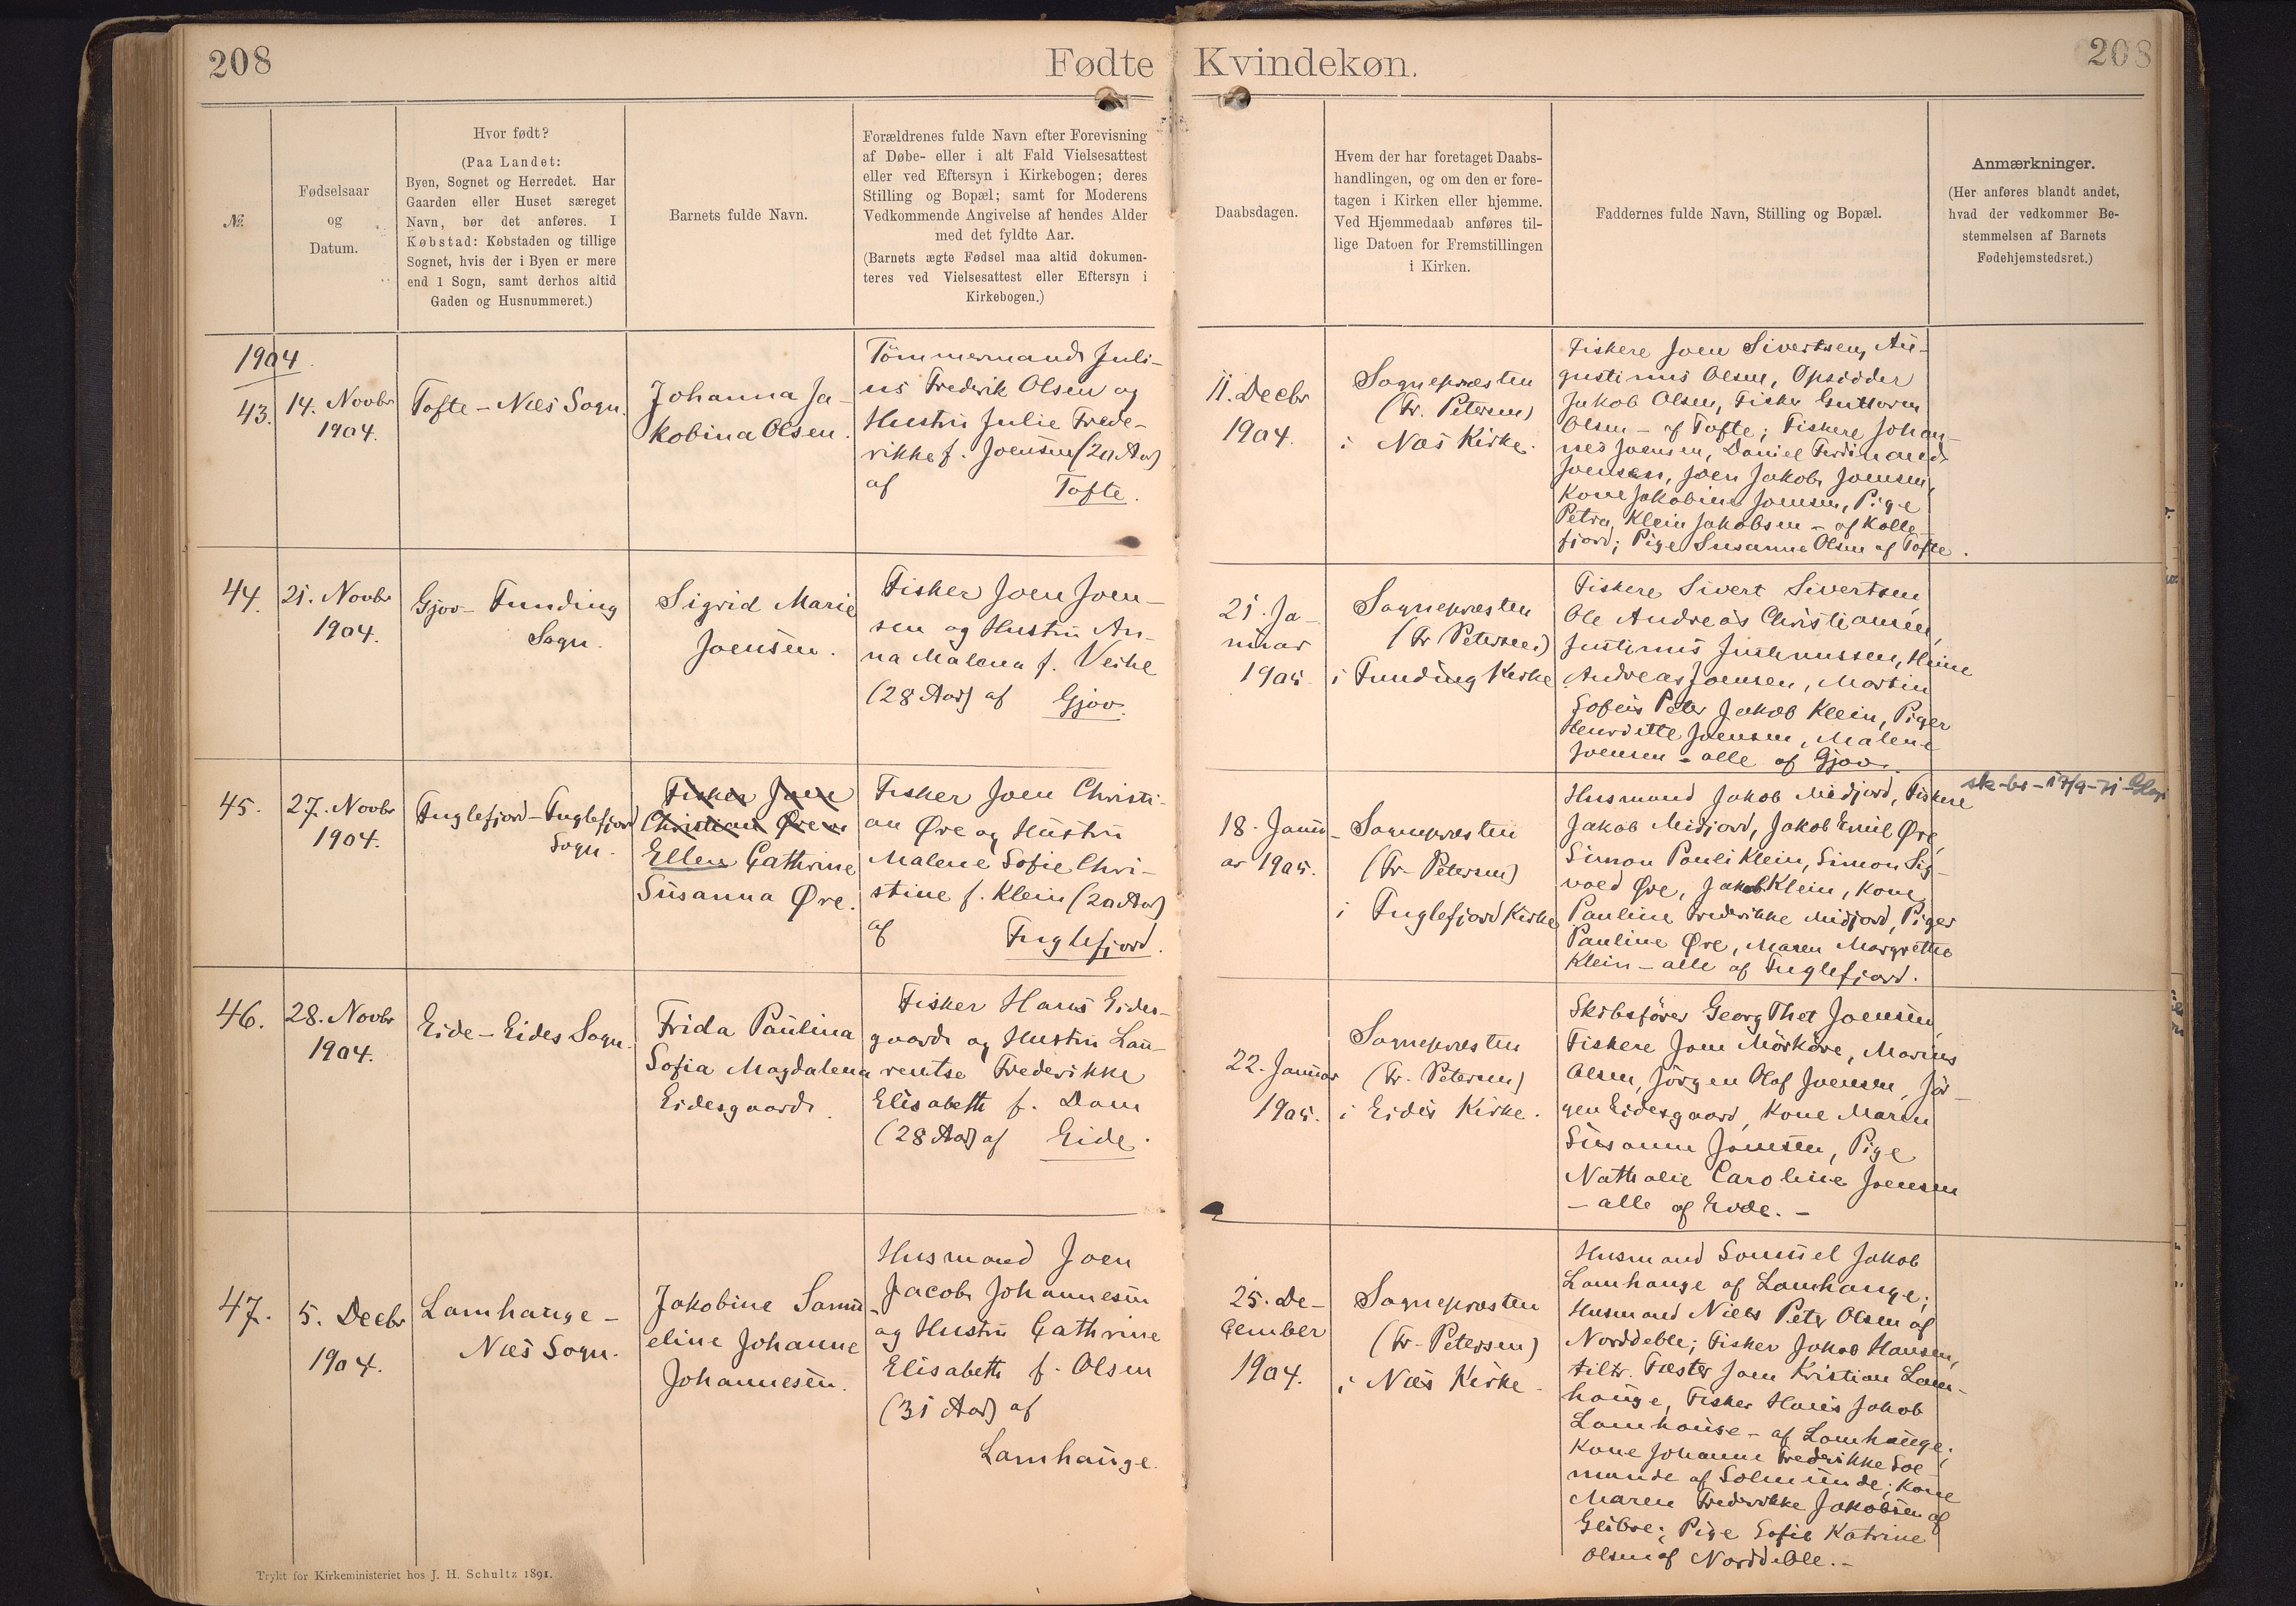 208
Fødte
Kvindekøn.
208
№
Fødselsaar
og
Datum.
Hvor født?
(Paa Landet:
Byen, Sognet og Herredet. Har
Gaarden eller Huset særeget
Navn, bør det anføres. I
Købstad: Købstaden og tillige
Sognet, hvis der i Byen er mere
end 1 Sogn, samt derhos altid
Gaden og Husnummeret.)
Barnets fulde Navn.
Forældrenes fulde Navn efter Forevisning
af Døbe- eller i alt Fald Vielsesattest
eller ved Eftersyn i Kirkebogen; deres
Stilling og Bopæl; samt for Moderens
Vedkommende Angivelse af hendes Alder
med det fyldte Aar.
(Barnets ægte Fødsel maa altid dokumen-
teres ved Vielsesattest eller Eftersyn i
Kirkebogen.)
Daabsdagen.
Hvem der har foretaget Daabs-
handlingen, og om den er fore-
tagen i Kirken eller hjemme.
Ved Hjemmedaab anføres til-
lige Datoen for Fremstillingen
i Kirken.
Faddernes fulde Navn, Stilling og Bopæl.
Anmærkninger.
(Her anføres blandt andet,
hvad der vedkommer Be-
stemmelsen af Barnets
Fødehjemstedsret.)
1904
43.
14. Novbr
1904.
Tofte - Næs Sogn.
Johanna Ja-
kobina Olsen.
Tömmermand Juli-
us Frederik Olsen og
Hustru Julie Frede-
rikke f. Joensen (20 Aar)
af Tofte.
11. Decbr
1904.
Sognepræsten
(Fr. Petersen)
i Næs Kirke.
Fiskere Joen Sivertsen, Au-
gustinus Olsen, Opsidder
Jakob Olsen, Fisker Guttorm
Olsen - af Tofte; Fiskere Johan-
nes Joensen, Daniel Ferdinand
Joensen, Joen Jakob Joensen,
Kone Jakobine Joensen, Pige
Petra Klein Jakobsen - af Kolle-
fjord; Pige Susanne Olsen af Tofte.
44.
21. Novbr
1904.
Gjov - Funding
Sogn.
Sigrid Marie
Joensen.
Fisker Joen Joen-
sen og Hustru An-
na Malena f. Veihe
(28 Aar) af Gjov.
21. Ja-
nuar
1905
Sognepræsten
(Fr Petersen)
i Funding Kirke
Fiskere Sivert Sivertsen,
Ole Andreas Christiansen,
Justinus Justinussen, Heine
Andreas Joensen, Martin
Sofus Peter Jakob Klein, Piger
Henriette Joensen, Malene
Joensen - alle af Gjov.
45.
27. Novbr
1904.
Fuglefjord - Fuglefjord
Sogn.
Fisker Joen
Christian Øre og
Ellen Cathrine
Susanna Øre.
Fisker Joen Christi-
an Øre og Hustru
Malene Sofie Chri-
stine f. Klein (20 Aar)
af Fuglefjord.
18. Janu-
ar 1905.
Sognepræsten
(Fr. Petersen)
i Fuglefjord Kirke
Husmand Jakob Midjord, Fiskere
Jakob Midjord, Jakob Emil Øre,
Simon Pauli Klein, Simon Sig-
vald Øre, Jakob Klein, Kone
Pauline Frederikke Midjord, Piger
Pauline Øre, Maren Margrethe
Klein - alle af Fuglefjord.
46.
28. Novbr
1904.
Eide - Eides Sogn.
Frida Paulina
Sofia Magdalena
Eidesgaard.
Fisker Hans Eides-
gaard og Hustru Lau-
rentse Frederikke
Elisabeth f. Dam
(28 Aar) af Eide.
22. Januar
1905.
Sognepræsten
(Fr. Petersen)
i Eides Kirke.
Skibsförer Georg Thet Joensen,
Fiskere Joen Mörköre, Marius
Olsen, Jörgen Olaf Joensen, Jör-
gen Eidesgaard, Kone Maren
Susanne Joensen, Pige
Nathalie Caroline Joensen
- alle af Eide. -
47.
5. Decbr
1904.
Lamhauge -
Næs Sogn.
Jakobine Samu-
eline Johanne
Johannesen.
Husmand Joen
Jacob Johannesen
og Hustru Cathrine
Elisabeth f. Olsen
(31 Aar) af
Lamhauge.
25. De-
cember
1904.
Sognepræsten
(Fr. Petersen)
i Næs Kirke.
Husmand Samuel Jakob
Lamhauge af Lamhauge;
Husmand Niels Peter Olsen af
Norddeble; Fisker Jakob Hansen,
tiltr. Fæster Joen Kristian Lam-
hauge, Fisker Hans Jakob
Lamhauge - af Lamhauge;
Kone Johanne Frederikke Sol-
munde af Solmunde; Kone
Maren Frederikke Jakobsen af
Glibre; Pige Sofie Katrine
Olsen af Norddeble. -
Trykt for Kirkeministeriet hos J. H. Schultz 1891.